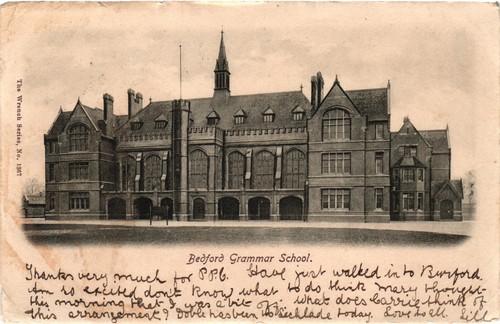 The Wrench Series, No. 1367
Bedford Grammar School.
Thanks very much for P.P.C. Have just walked in to Burford.
Am so excited don't know what to do think Mary thought
this morning that I was a bit off. What does Carrie think of
this arrangement? Doble has been to Lechlade today. Love to all. Lill